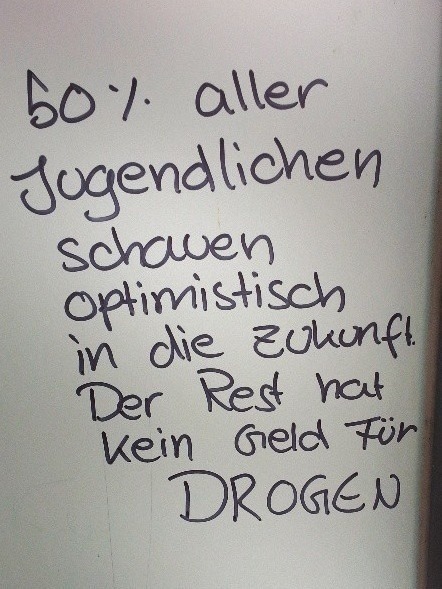 50% aller
Jugendlichen
schauen
optimistisch
in die Zukunft.
Der Rest hat
kein Geld Für
DROGEN